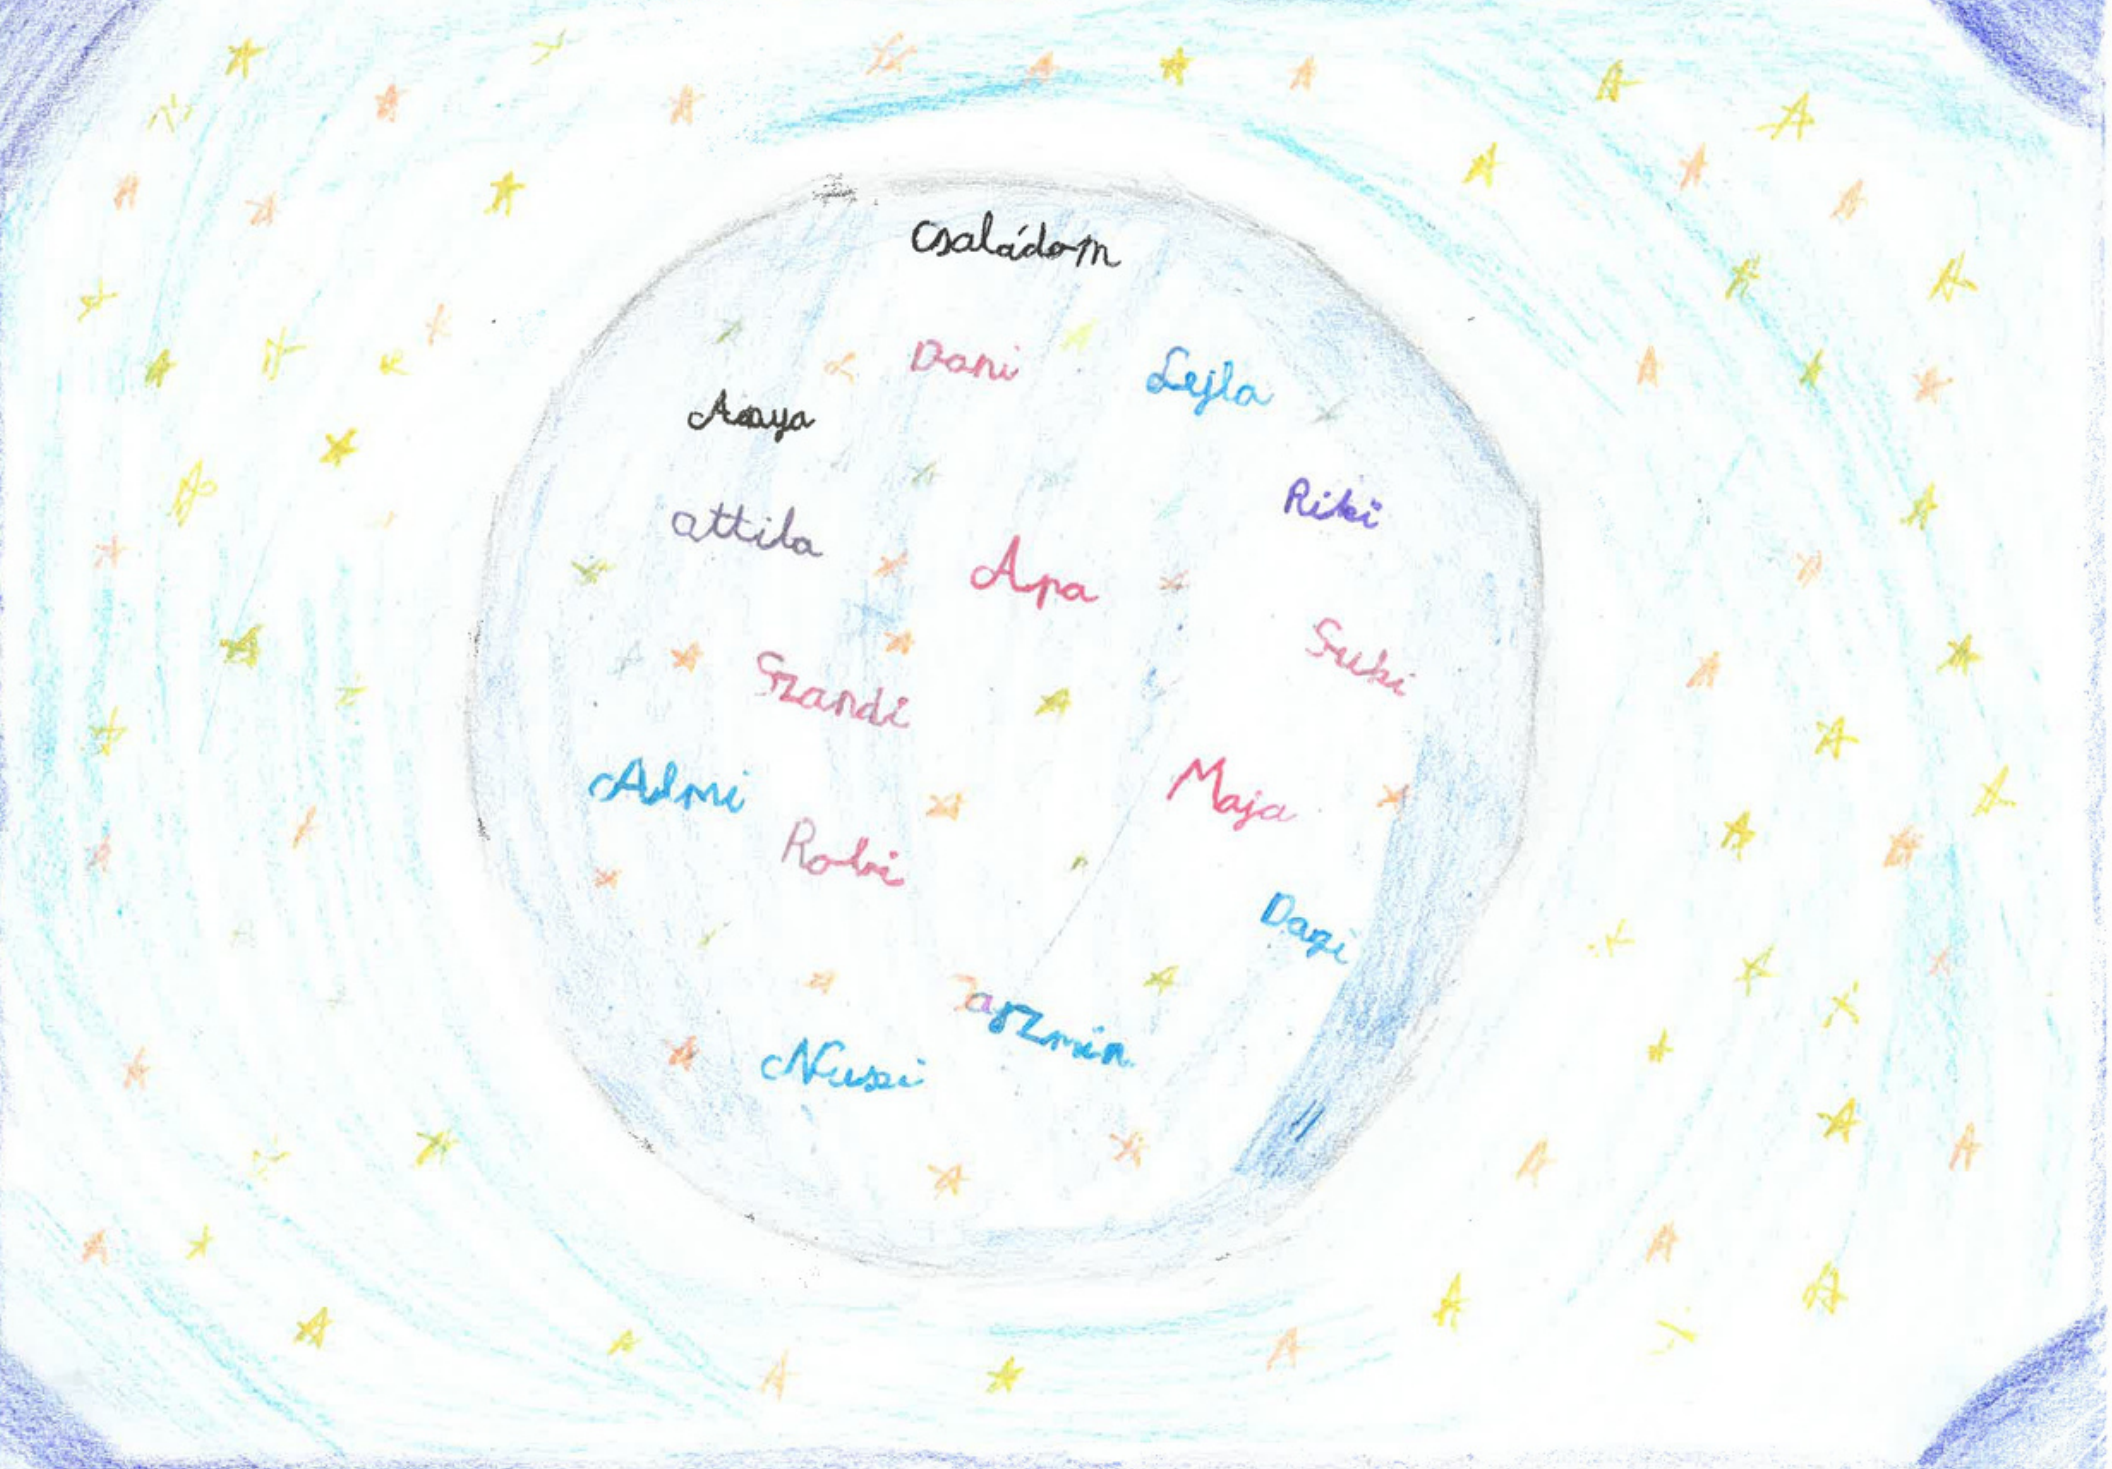 Családom
Dani
Lejla
Anya
Riki
attila
Apa
Suki
Szandi
Maja
Almi
Robi
Dazi
Jazmin
Nuszi